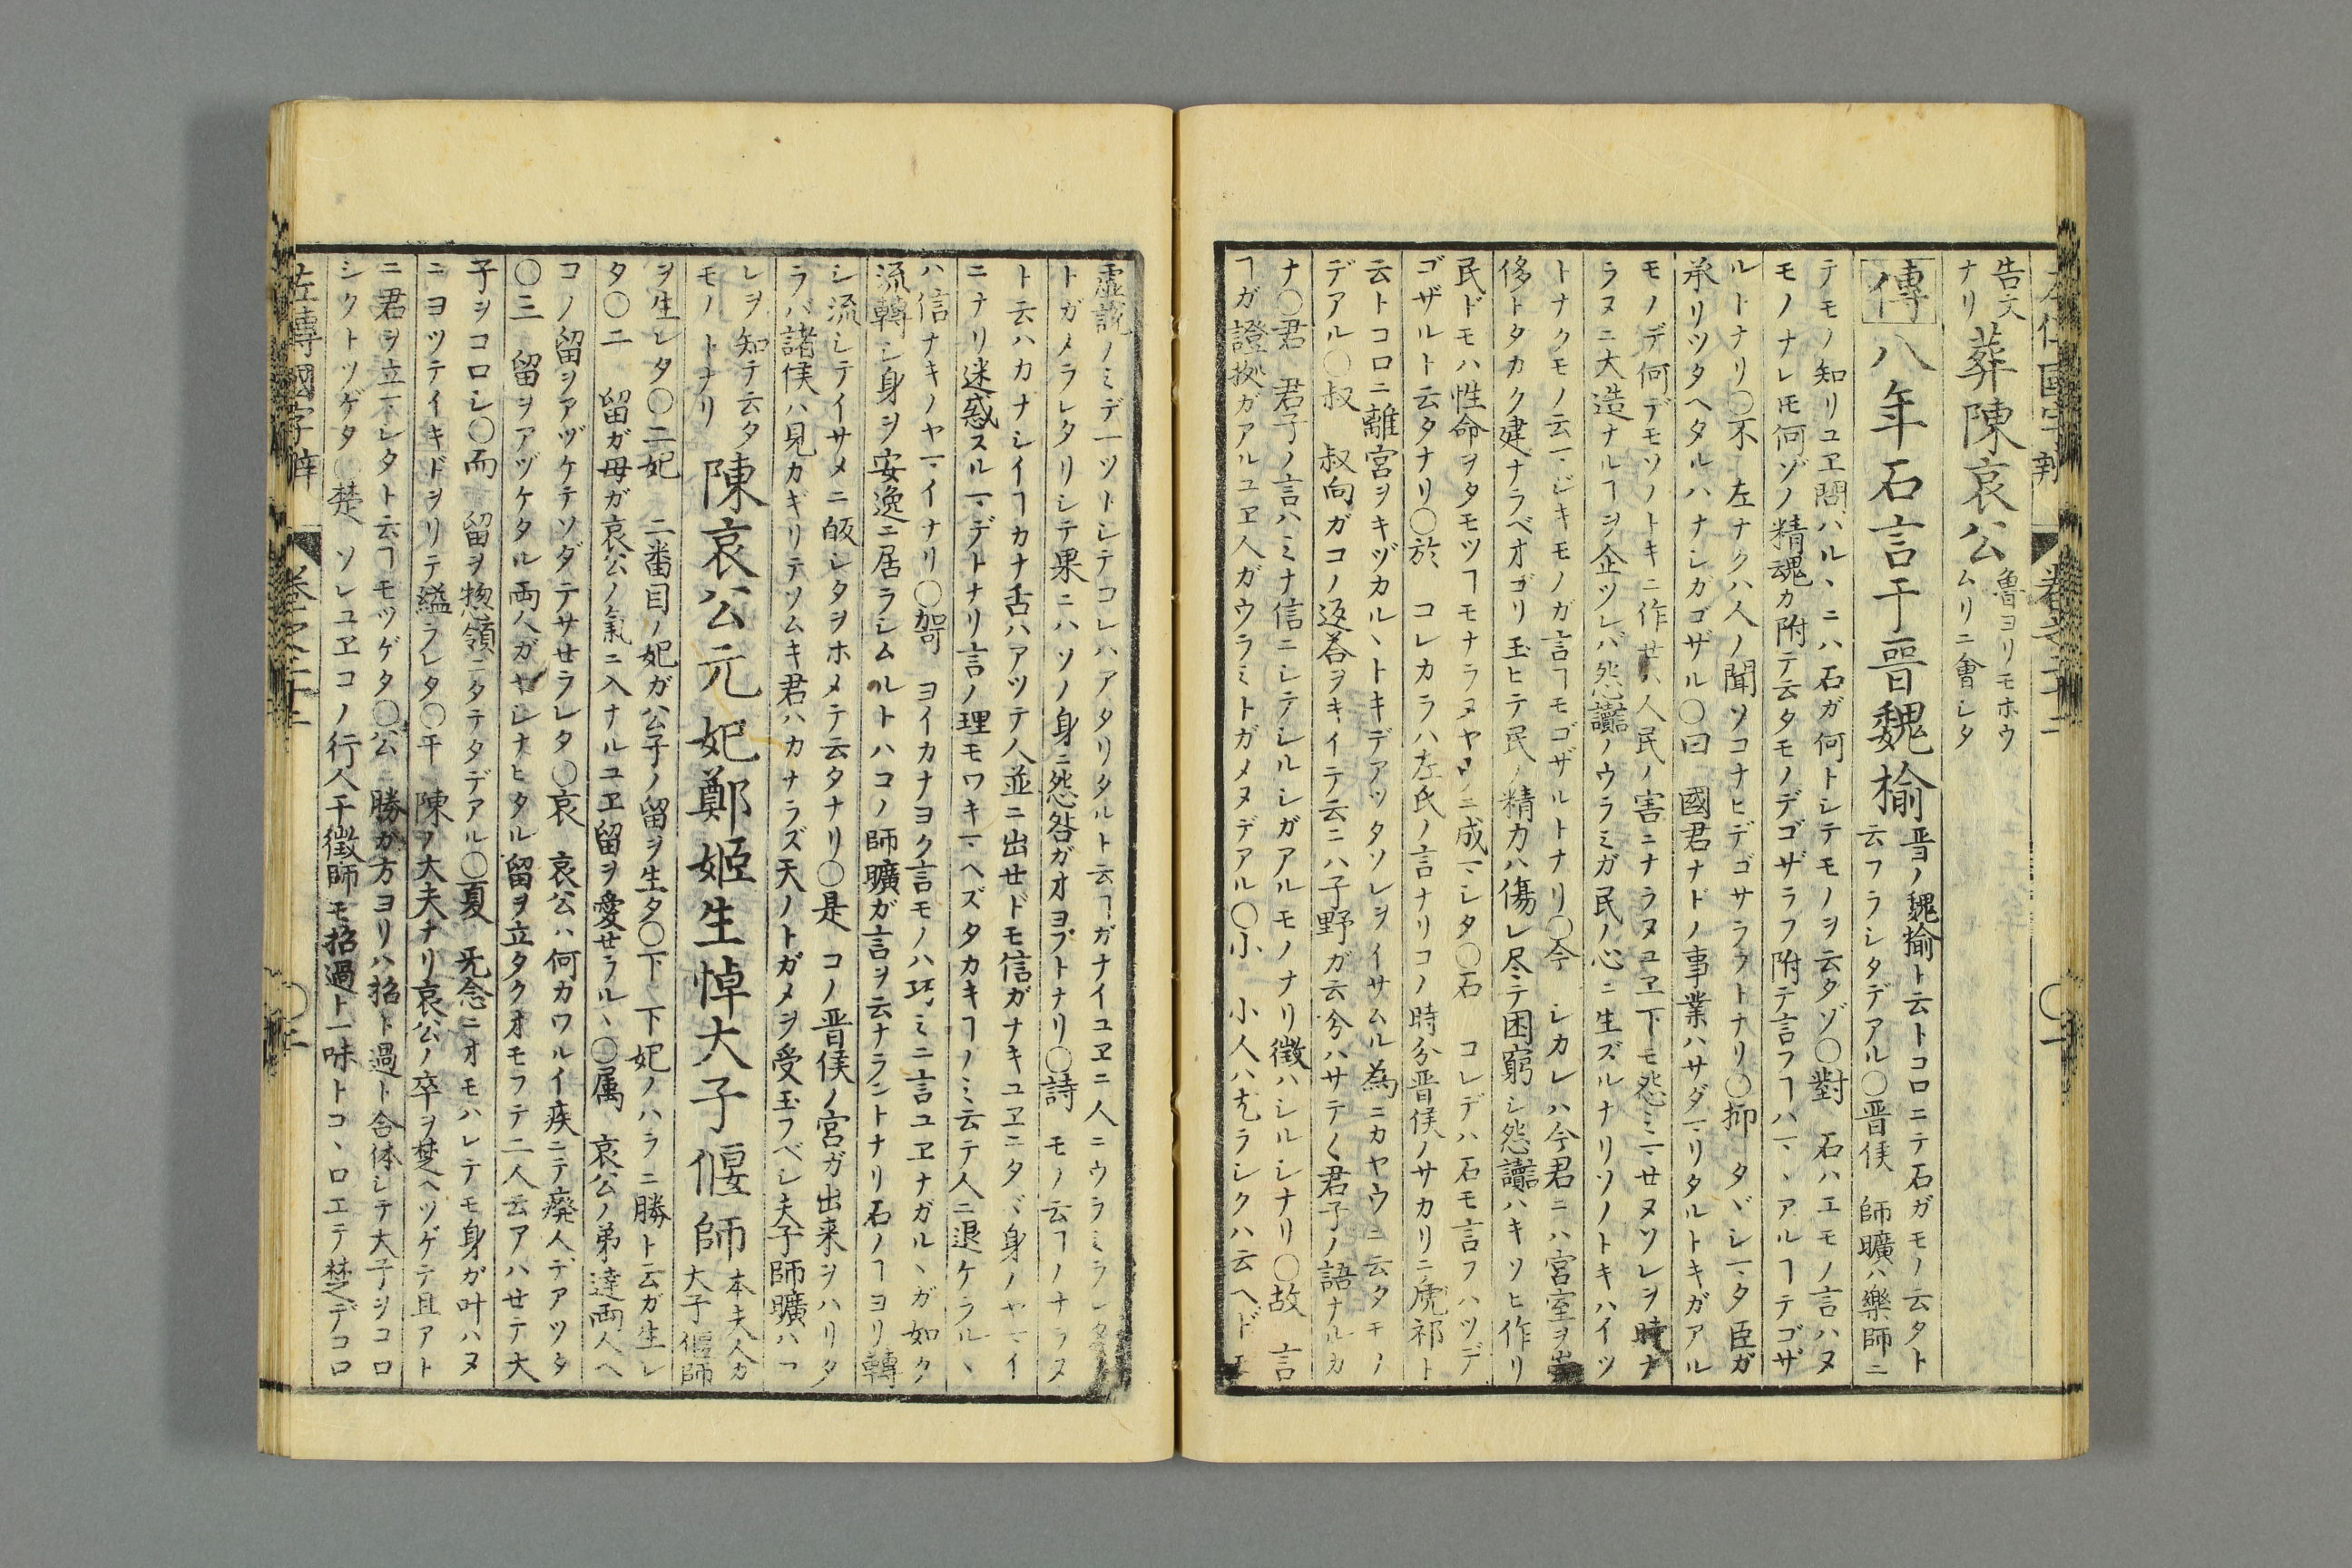 告文
ナリ
葬陳哀公
魯ヨリモホウ
ムリニ會シタ
傳
八年石言于晉魏榆
晋ノ魏揄ト云トコロニテ石ガモノ云タト
云フラシタデアル○晋侯 師曠ハ樂師ニ
テモノ知リユヱ問ハルヽニハ石ガ何トシテモノヲ云タゾ○對 石ハエモノ言ハヌ
モノナレ𪜈何ゾノ精魂カ附テ云タモノデゴザラフ附テ言フヿハマヽアルヿテゴザ
ルトナリ○不 左ナクハ人ノ聞ソコナヒデゴサラウトナリ○抑 タヾシマタ臣ガ
承リツタヘタルハナシガゴザル○曰 國君ナドノ事業ハサダマリタルトキガアル
モノデ何デモソノトキニ作せハ人民ノ害ニナラヌユヱ下モ怨ミマせヌソレヲ時ナ
ラヌニ大造ナルヿヲ企ツレバ怨讟ノウラミガ民ノ心ニ生ズルナリソノトキハイツ
トナクモノ云マジキモノガ言ヿモゴザルトナリ○今 シカレハ今君ニハ宮室ヲ崇
侈トタカク建ナラベオゴリ玉ヒテ民ノ精力ハ傷レ尽テ困窮シ怨讟ハキソヒ作リ
民ドモハ性命ヲタモツヿモナラヌヤウニ成マシタ○石 コレデハ石モ言フハツデ
ゴザルト云タナリ○於 コレカラハ左氏ノ言ナリコノ時分晋侯ノサカリニ虒祁ト
云トコロニ離宮ヲキヅカルヽトキデアツタソレヲイサムル為ニカヤウニ云タモノ
デアル○叔 叔向ガコノ返荅ヲキイテ云ニハ子野ガ云分ハサテ〱君子ノ語ナルカ
ナ○君 君子ノ言ハミナ信ニシテシルシガアルモノナリ徴ハシルシナリ○故 言
ヿガ證拠ガアルユヱ人ガウラミトガメヌデアル○小 小人ハ尤ラシクハ云ヘドモ
虚說ノミデ一ツトシテコレハアタリタルト云ヿガナイユヱニ人ニウラミラレタ
トガメラレタリシテ果ニハソノ身ニ怨咎ガオヨブトナリ○詩 モノ云ヿノナラヌ
ト云ハカナシイヿカナ舌ハアツテ人並ニ出せドモ信ガナキユヱニタヾ身ノヤマイ
ニナリ迷惑スルマデトナリ言ノ理モワキマヘズタカキヿノミ云テ人ニ退ケラルヽ
ハ信ナキノヤマイナリ○哿 ヨイカナヨク言モノハ巧ミニ言ユヱナガルヽガ如ク
流轉シ身ヲ安逸ニ居ラシムルトハコノ師曠ガ言ヲ云ナラントナリ石ノヿヨリ轉
シ流シテイサメニ皈シタヲホメテ云タナリ○是 コノ晋侯ノ宮ガ出来ヲハリタ
ラバ諸侯ハ見カギリテソムキ君ハカナラズ天ノトガメヲ受玉フベシ夫子師曠ハコ
レヲ知テ云タ
モノトナリ
陳哀公元妃鄭姬生悼大子偃師
本夫人カ
大子偃師
ヲ生レタ○二妃 二番目ノ妃ガ公子ノ留ヲ生タ○下 下妃ノハラニ勝ト云ガ生レ
タ○二 留ガ母ガ哀公ノ氣ニ入ナルユヱ留ヲ愛せラルヽ○属 哀公ノ弟達両人ヘ
コノ留ヲアヅケテソダテサせラレタ○哀 哀公ハ何カワルイ疾ニテ廃人デアツタ
○三 留ヲアヅケタル両人ガヤシナヒタル留ヲ立タクオモフテ二人云アハせテ大
子ヲコロシ○而 留ヲ惣領ニタテタデアル○夏 无念ニオモハレテモ身ガ叶ハヌ
ニヨツテイキドヲリテ縊ラレタ○干 陳ノ大夫ナリ哀公ノ卒ヲ楚ヘツゲテ且アト
ニ君ヲ立マシタト云ヿモツゲタ○公 勝ガ方ヨリハ招ト過ト合体シテ大子ヲコロ
シクトツゲタ○楚 ソレユヱコノ行人干徴師モ招過ト一味トコヽロエテ楚デコロ
左傳國字辯 卷之二十二 ○二